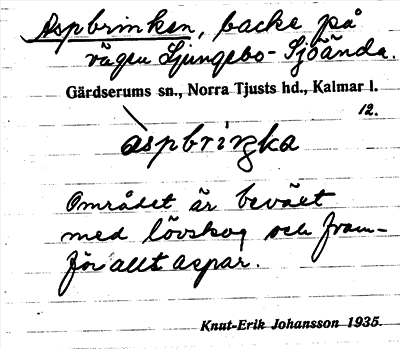 Aspbrinken, backe på
vägen Ljungsbo - Sjöända.
Gärdserums sn., Norra Tjusts hd., Kalmar l.
12.
àspbriŋka
Området är beväxt
med lövskog och fram-
för allt aspar.
Knut-Erik Johansson 1935.